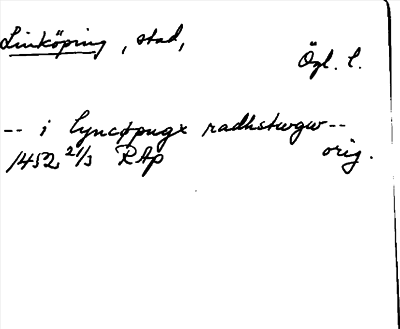 Linköping, stad,
Ögl. l.
-- i lyncøpugx radhstwgw --
1452 21/3 RAp orig.